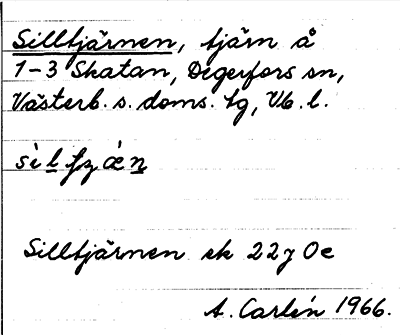 Silltjärnen, tjärn å
1-3 Skatan, Degerfors sn,
Västerb. s. doms. tg, Vb. l.
Silltjärnen ek 22 y Oe
A. Carlén 1966.